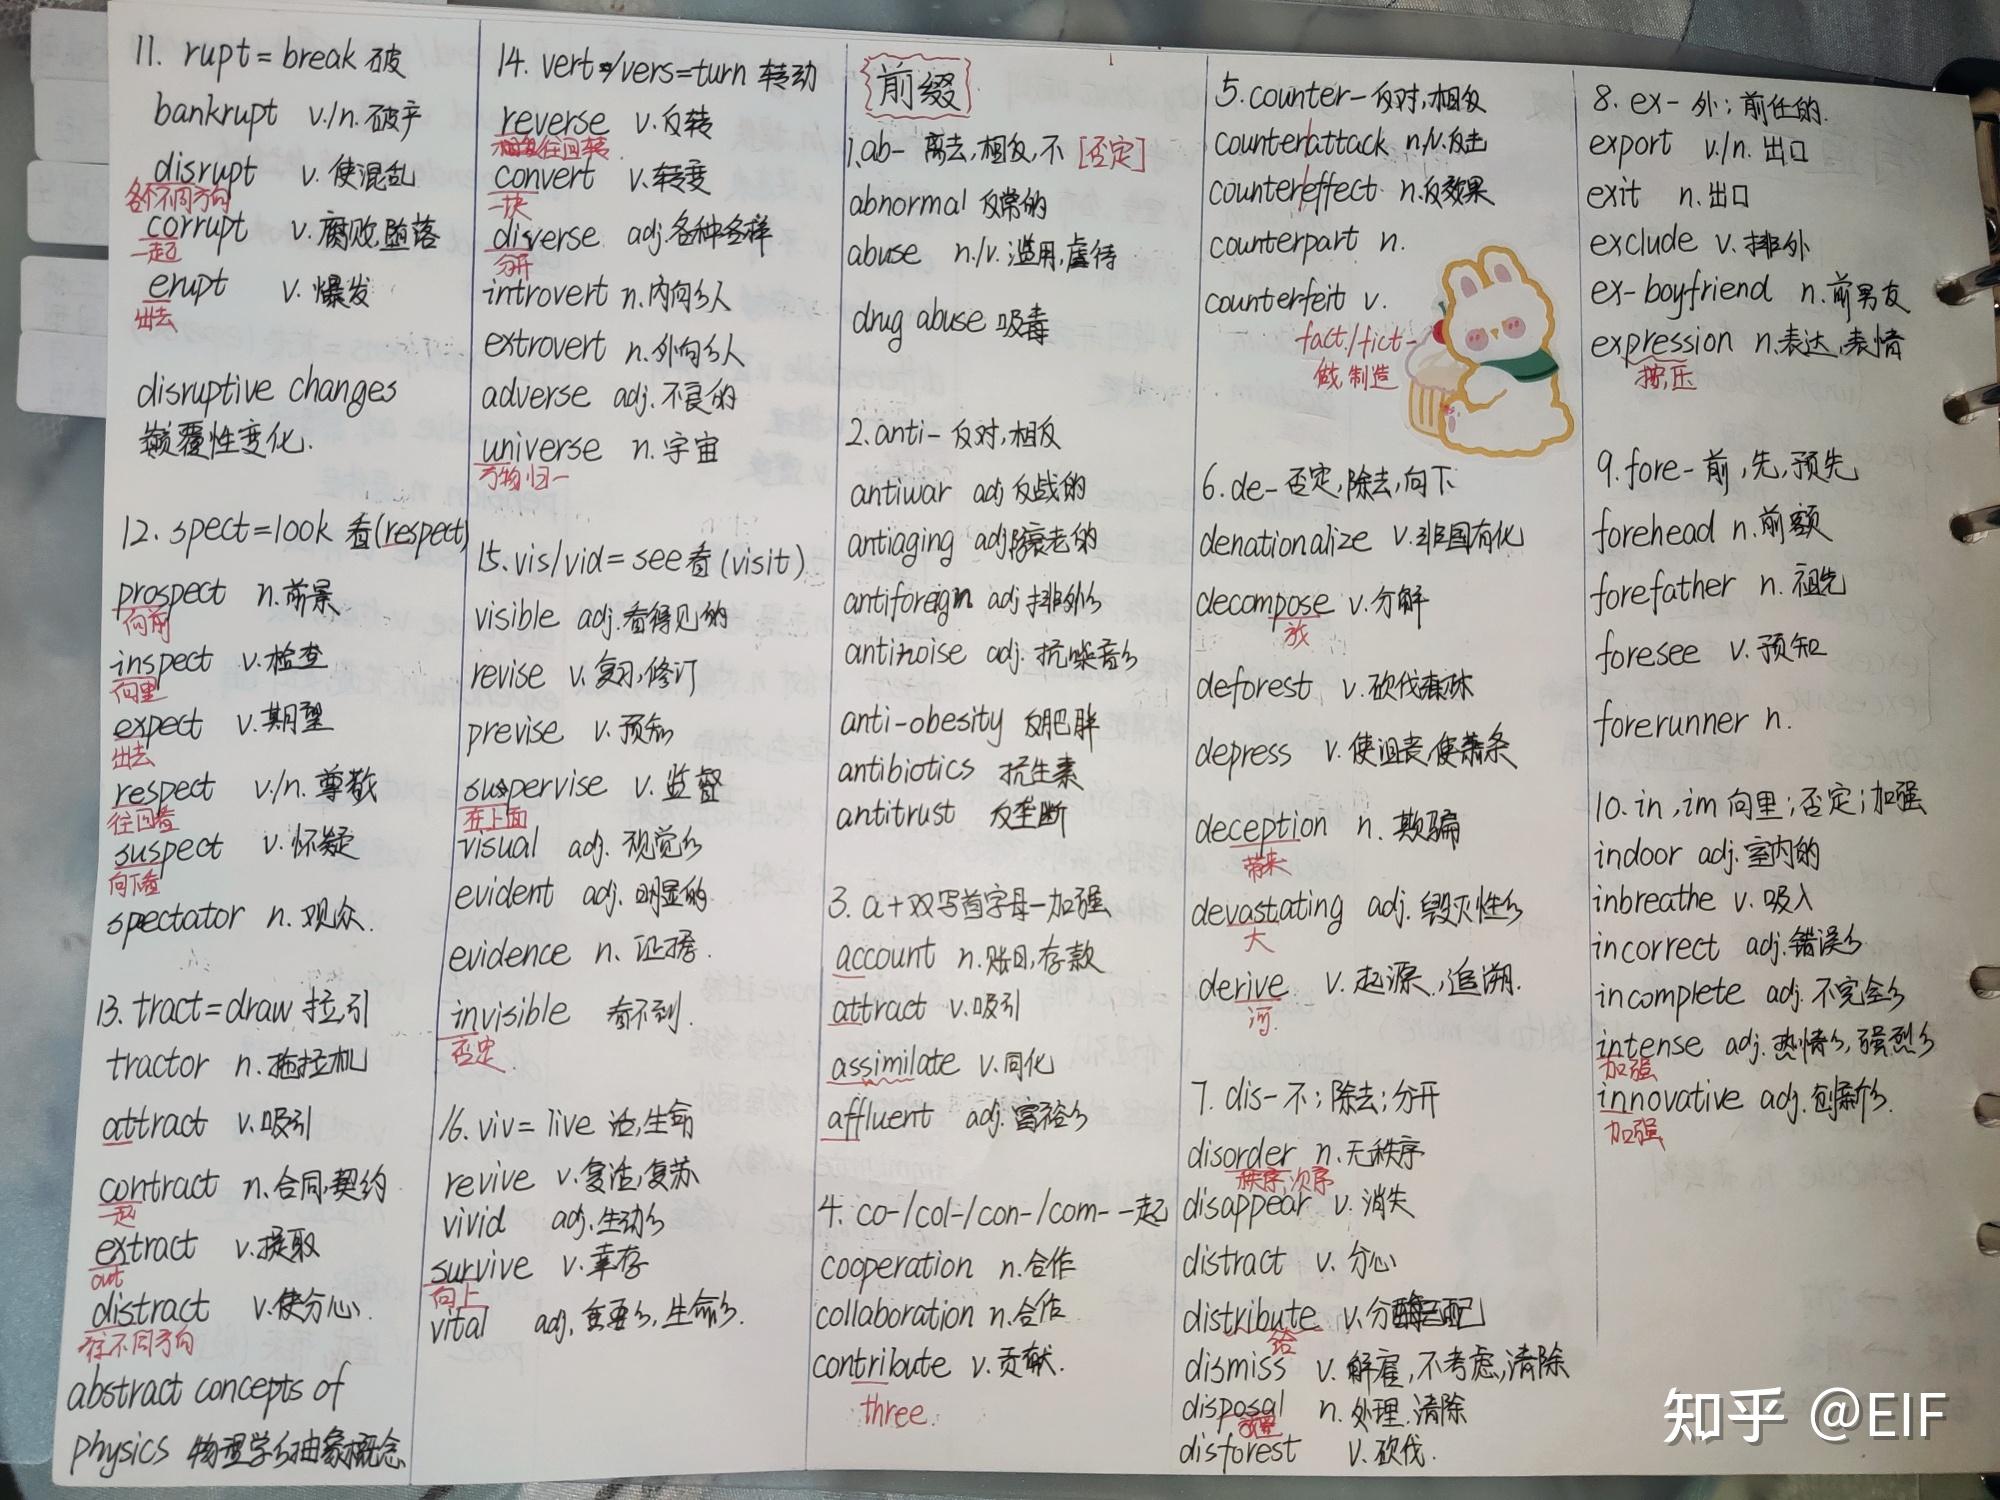 11. rupt = break 破
bankrupt v./n. 破产
disrupt v. 使混乱
各个不同方向
corrupt v. 腐败,堕落
一起
erupt v. 爆发
出去
disruptive changes
颠覆性变化.
12. spect = look 看(respect)
prospect n. 前景
向前
inspect v. 检查
向里
expect v. 期望
出去
respect v./n. 尊敬
往回看
suspect v. 怀疑
向下看
spectator n. 观众.
13. tract = draw 拉,引
tractor n. 拖拉机
attract v. 吸引
contract n. 合同,契约
一起
extract v. 提取
out
distract v. 使分心.
往不同方向
abstract concepts of
physics 物理学的抽象概念
14. vert/vers = turn 转动
reverse v. 反转
往回转
convert v. 转变
一块
diverse adj. 各种各样
分开
introvert n. 内向的人
extrovert n. 外向的人
adverse adj. 不良的
universe n. 宇宙
万物归一
15. vis/vid = see 看(visit)
visible adj. 看得见的
revise v. 复习,修订
previse v. 预知
supervise v. 监督
在上面
visual adj. 视觉的
evident adj. 明显的
evidence n. 证据.
invisible 看不到.
否定
16. viv = live 活,生命
revive v. 复活,复苏
vivid adj. 生动的
survive v. 幸存
向上
vital adj. 重要的,生命的
前缀
1. ab- 离去,相反,不 [否定]
abnormal 反常的
abuse n./v. 滥用,虐待
drug abuse 吸毒
2. anti- 反对,相反
antiwar adj 反战的
antiaging adj 防衰老的
antiforeign adj 排外的
antinoise adj. 抗噪音的
anti-obesity 反肥胖
antibiotics 抗生素
antitrust 反垄断
3. a+双写首字母-加强
account n. 账目,存款
attract v. 吸引
assimilate v. 同化
affluent adj. 富裕的
4. co-/col-/con-/com- 一起
cooperation n. 合作
collaboration n. 合作
contribute v. 贡献.
three.
5. counter- 反对,相反
counterattack n./v. 反击
countereffect n. 反效果
counterpart n.
counterfeit v.
fact/fict-
做,制造
6. de- 否定,除去,向下
denationalize v. 非国有化
decompose v. 分解
放
deforest v. 砍伐森林
depress v. 使沮丧,使萧条
deception n. 欺骗
带来
devastating adj. 毁灭性的
大
derive v. 起源,追溯.
河
7. dis- 不;除去;分开
disorder n. 无秩序
秩序,次序
disappear v. 消失
distract v. 分心
distribute v. 分配
给
dismiss v. 解雇,不考虑,清除
disposal n. 处理.清除
disforest v. 砍伐.
8. ex- 外; 前任的.
export v./n. 出口
exit n. 出口
exclude v. 排外
ex-boyfriend n. 前男友
expression n. 表达,表情
按,压
9. fore- 前,先,预先
forehead n. 前额
forefather n. 祖先
foresee v. 预知
forerunner n.
10. in, im 向里;否定;加强
indoor adj. 室内的
inbreathe v. 吸入
incorrect adj. 错误的
incomplete adj. 不完全的
intense adj. 热情的,强烈的
加强
innovative adj. 创新的.
加强
知乎 @EIF